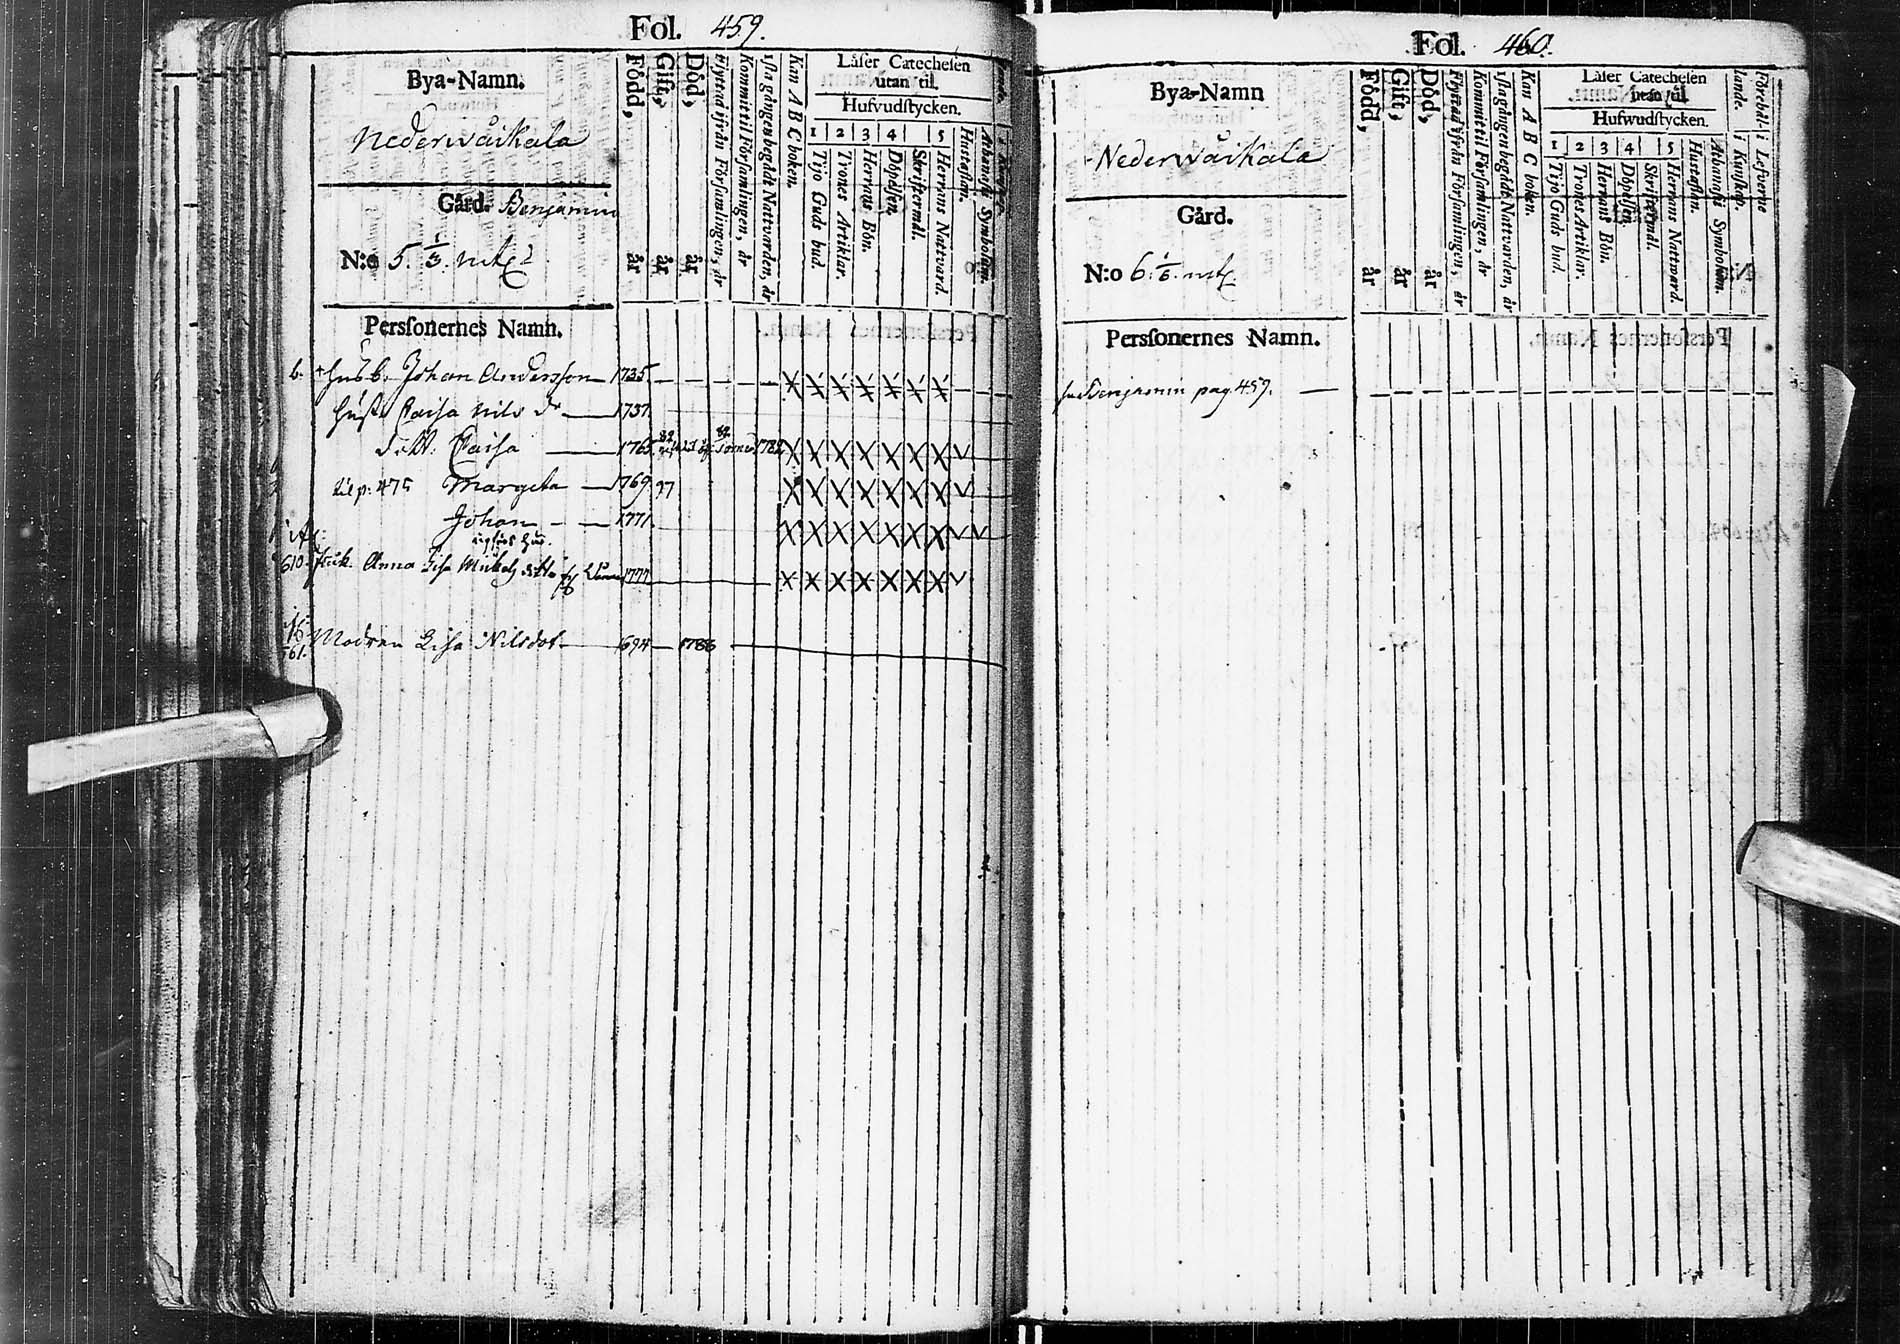 Fol. 459.
Bya-Namn.
Nederwäikala
Gård. Benjamin
N:o 5. 1/3. mtl
Född, år
Gift, år
Död, år
Flyttad ifrån Församlingen, år
Kommit til Församlingen, år
1sta gången begådt Nattvarden, år
Kan A B C boken.
Läser Catechesen
utan til.
Hufvudstycken.
1 2 3 4 5
Tijo Guds bud.
Trones Artiklar.
Herrans Bön.
Döpelsen.
Skriftermål.
Herrans Nattvard.
Hustaflan.
Athanasii Symbolum.
Persfonernes Namn.
b. + Husb. Johan Andersson 1735.
Hust. Caisa Nils dr 1737.
dott. Caisa 1765. 1782
til p: 475 Margeta 1769. 97
Johan 1771.
610. Anna Lisa 1777
561. Modren Lisa Nilsdot 1694 1786
Fol. 460.
Bya-Namn
Nederwäikala
Gård.
N:o 6. mtl
Född, år
Gift, år
Död, år
Flyttad ifrån Församlingen, år
Kommit til Församlingen, år
1sta gången begådt Nattvarden, år
Kan A B C boken.
Läser Catechesen
utan til.
Hufwudstycken.
1 2 3 4 5
Tijo Guds bud.
Trones Artiklar.
Herrans Bön.
Döpelsen.
Skriftermål.
Herrans Nattward.
Hustaflan.
Athanasii Symbolum.
i Kunskap.
i Lefverne
Persfonernes Namn.
Benjamin pag. 459.